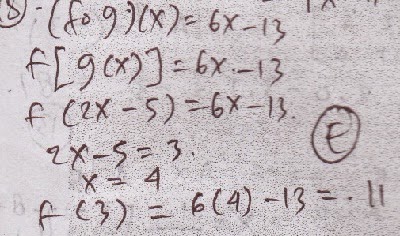 8.- (f o g)(x) = 6x - 13
f[g(x)] = 6x - 13
f (2x - 5) = 6x - 13.
2x - 5 = 3.
E
x = 4
f (3) = 6(4) - 13 = 11